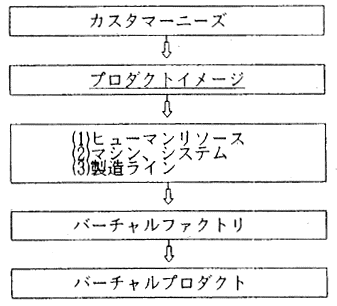 カスタマーニーズ
プロダクトイメージ
(1)ヒューマンリソース
(2)マシン、システム
(3)製造ライン
バーチャルファクトリ
バーチャルプロダクト